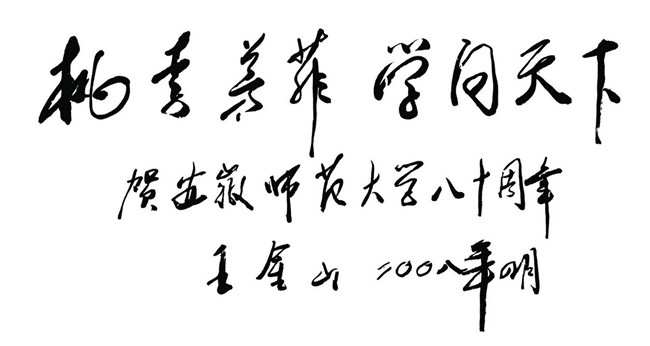 桃李芬菲 学问天下
贺安徽师范大学八十周年
王金山 二〇〇八年明